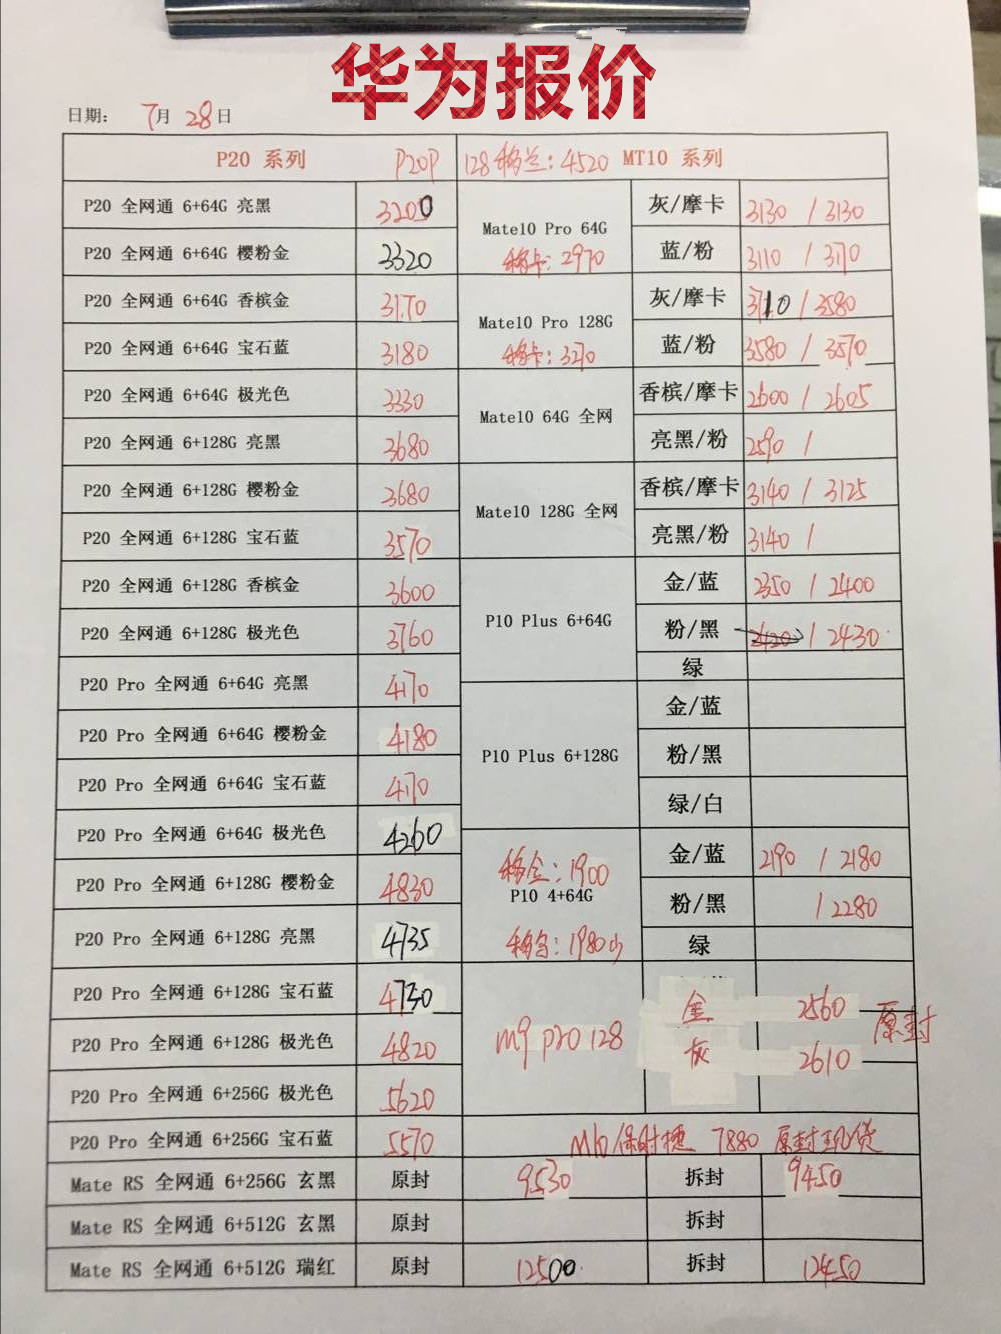 华为报价
日期： 7月 28日
P20 系列 P20P 128移兰: 4520 MT10 系列
P20 全网通 6+64G 亮黑 3200
P20 全网通 6+64G 樱粉金 3320
P20 全网通 6+64G 香槟金 3170
P20 全网通 6+64G 宝石蓝 3180
P20 全网通 6+64G 极光色 3330
P20 全网通 6+128G 亮黑 3680
P20 全网通 6+128G 樱粉金 3680
P20 全网通 6+128G 宝石蓝 3570
P20 全网通 6+128G 香槟金 3600
P20 全网通 6+128G 极光色 3760
P20 Pro 全网通 6+64G 亮黑 4170
P20 Pro 全网通 6+64G 樱粉金 4180
P20 Pro 全网通 6+64G 宝石蓝 4170
P20 Pro 全网通 6+64G 极光色 4260
P20 Pro 全网通 6+128G 樱粉金 4830
P20 Pro 全网通 6+128G 亮黑 4735
P20 Pro 全网通 6+128G 宝石蓝 4730
P20 Pro 全网通 6+128G 极光色 4820
P20 Pro 全网通 6+256G 极光色 5620
P20 Pro 全网通 6+256G 宝石蓝 5570
Mate10 Pro 64G
移卡: 2970
灰/摩卡 3130 / 3130
蓝/粉 3110 / 3170
Mate10 Pro 128G
移卡: 3270
灰/摩卡 3710 / 3580
蓝/粉 3580 / 3570
Mate10 64G 全网
香槟/摩卡 2600 / 2605
亮黑/粉 2590 /
Mate10 128G 全网
香槟/摩卡 3140 / 3125
亮黑/粉 3140 /
P10 Plus 6+64G
金/蓝 2350 / 2400
粉/黑 2420 / 2430
绿
P10 Plus 6+128G
金/蓝
粉/黑
绿/白
移金: 1900
P10 4+64G
1980
金/蓝 2190 / 2180
粉/黑 / 2280
绿
m9 pro 128
金 2560
灰 2610
原封
M10保时捷 7880 原封现货
Mate RS 全网通 6+256G 玄黑 原封 9530 拆封 9450
Mate RS 全网通 6+512G 玄黑 原封 拆封
Mate RS 全网通 6+512G 瑞红 原封 12500 拆封 12450